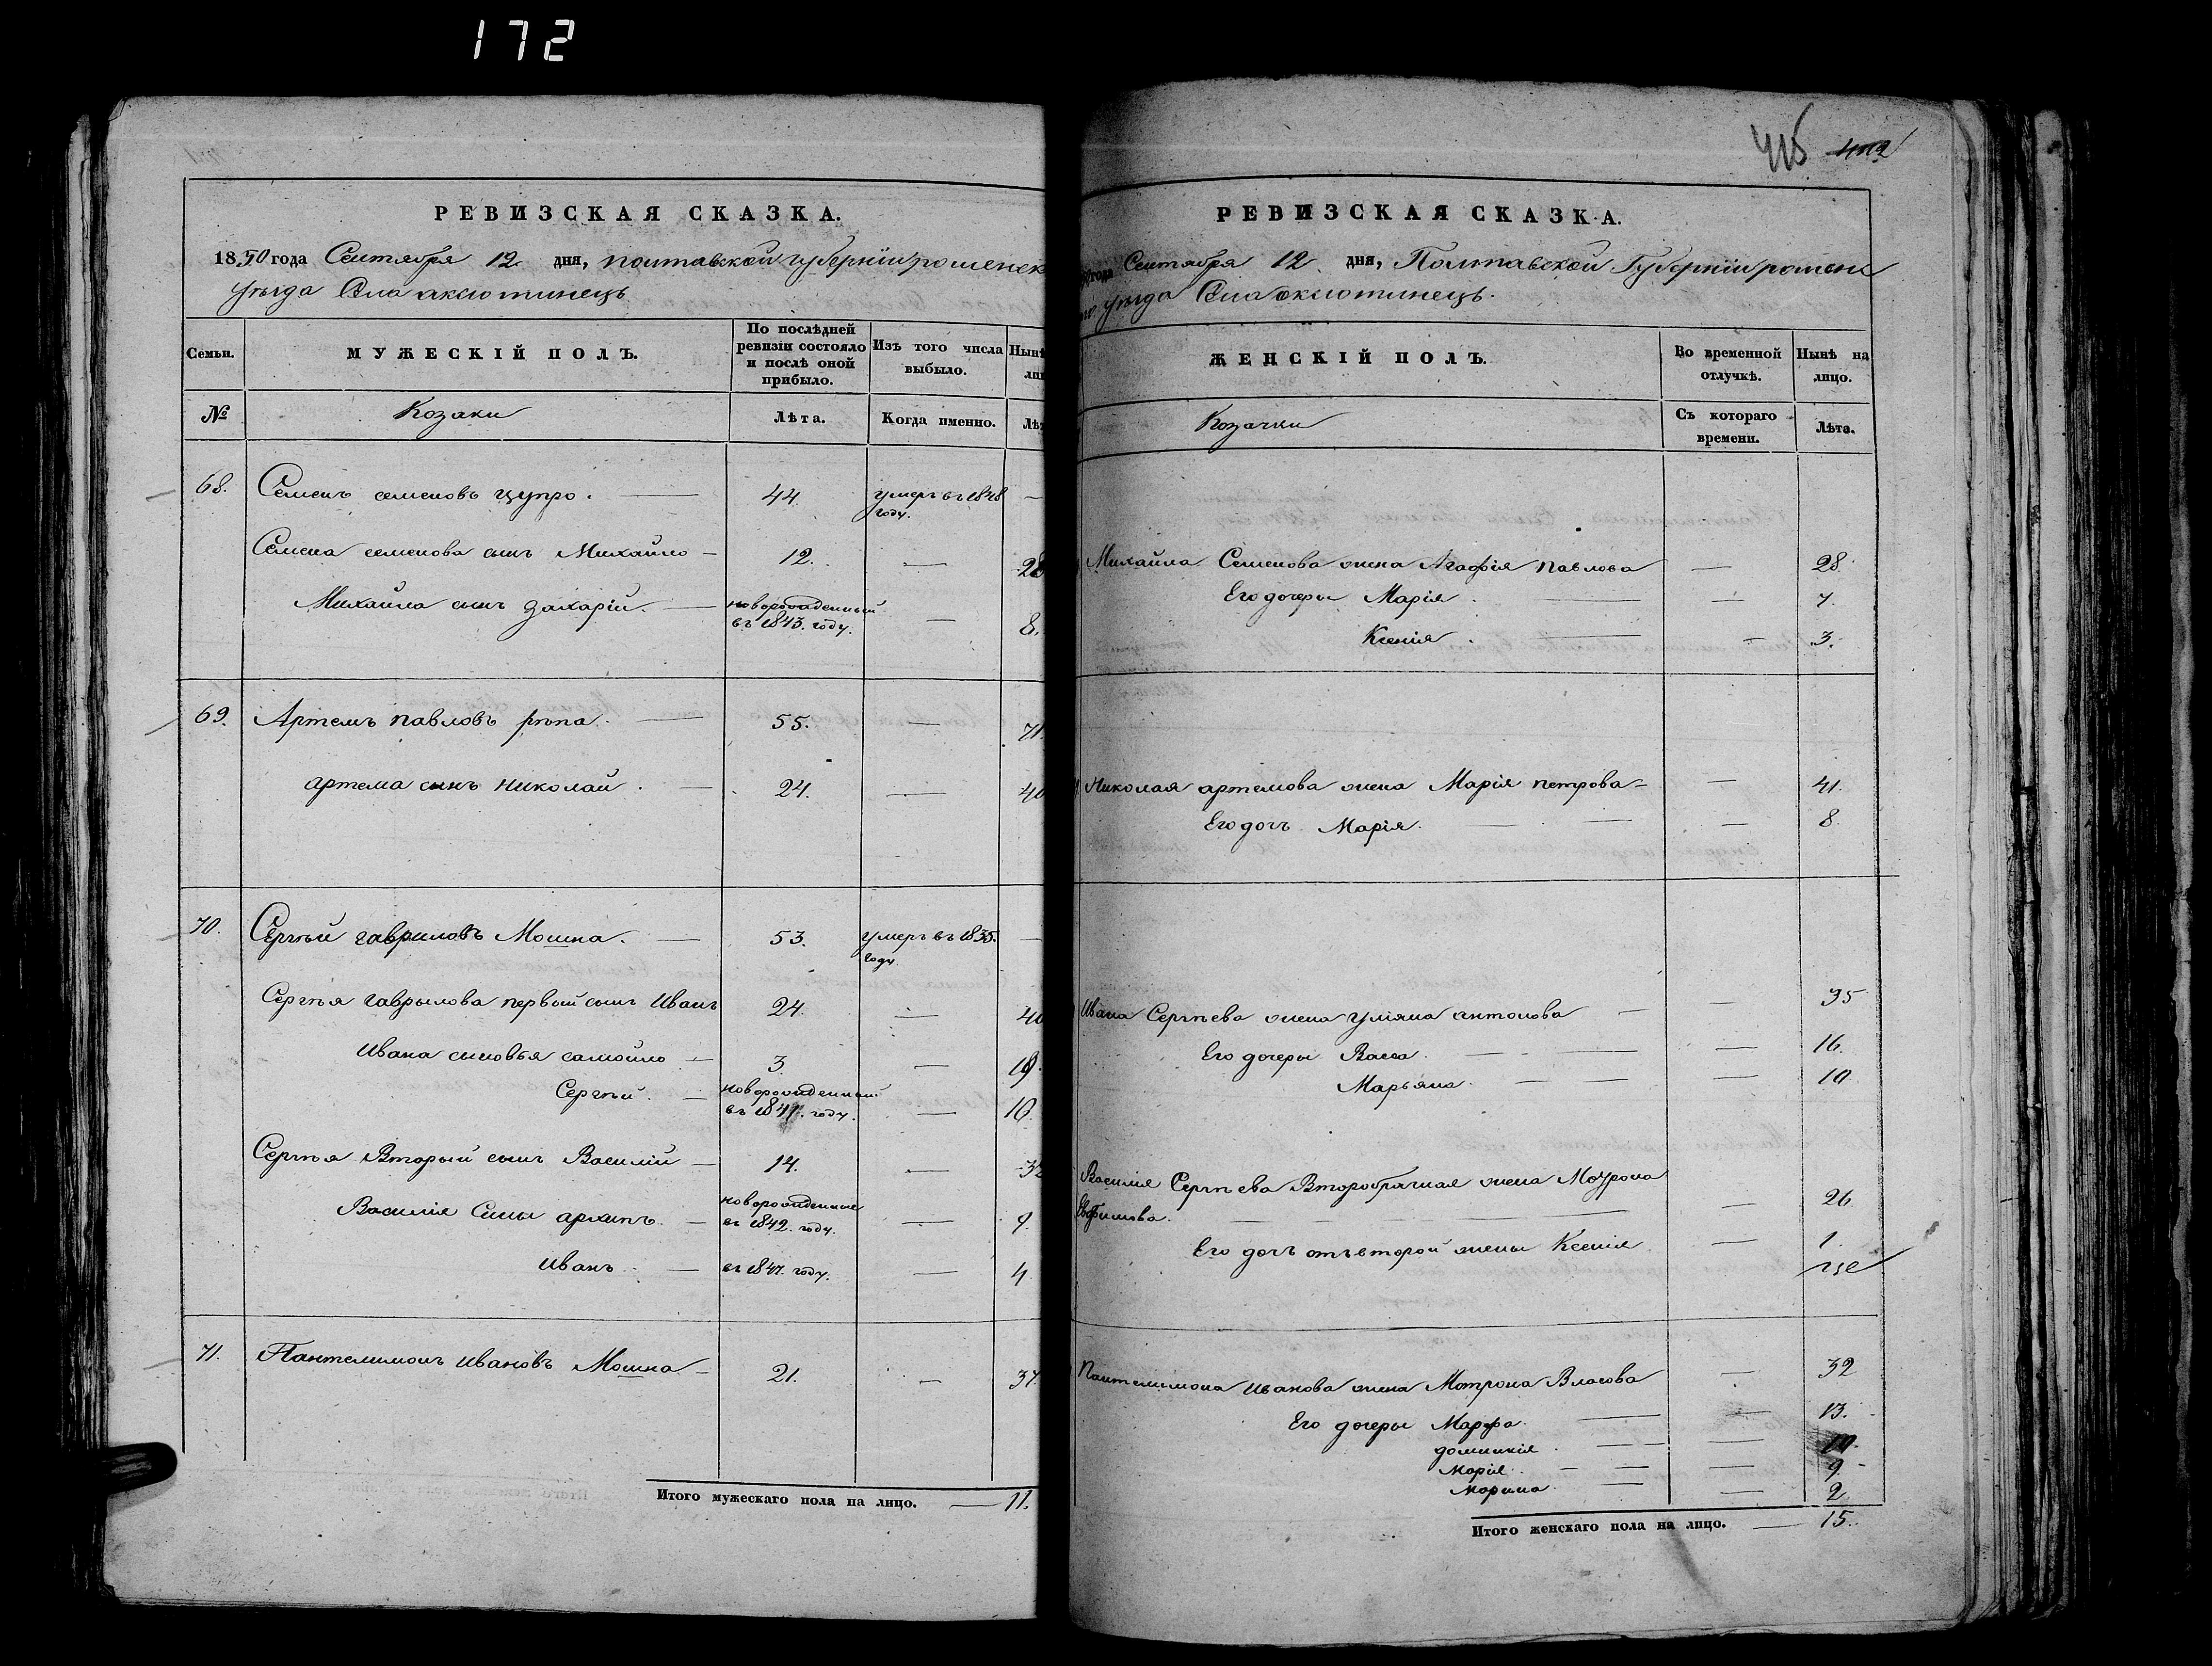 172
РЕВИЗСКАЯ СКАЗКА.
1850 года Сентября 12 дня, полтавской губерніи роменск
уѣзда Села аксютинецъ
Семьи.
МУЖЕСКІЙ ПОЛЪ.
По послѣдней ревизіи состояло и послѣ оной прибыло.
Изъ того числа выбыло.
Нынѣ
№
Козаки
Лѣта.
Когда именно.
Лѣт
68. Семенъ семеновъ цупро. — 44. умеръ въ 1848 году. —
Семена семенова сынъ Михайло — 12. — 28
Михайла сынъ захарій. — новорожденный въ 1843. году. — 8.
69. Артемъ павловъ рѣпа. — 55. — 71.
артема сынъ николай. — 24. — 40
70. Сергѣй гавриловъ Мошна. — 53. умеръ въ 1835. году. —
Сергѣя гаврылова первой сынъ Иванъ 24. — 40
Ивана сыновья самойло — 3. — 19.
Сергѣй. — новорожденный въ 1841. году. — 10.
Сергѣя Вторый сынъ Василій — 14. — 32
Василія Сыны архипъ. — новорожденные въ 1842. году. — 9.
Иванъ — въ 1847. году. — 4
71. Пантелимонъ ивановъ Мошна — 21. — 37.
Итого мужескаго пола на лицо. — 11.
415 412
РЕВИЗСКАЯ СКАЗКА.
года Сентября 12 дня, Полтавской Губерніи ромен
уѣзда Села аксютинецъ.
ЖЕНСКІЙ ПОЛЪ.
Во временной отлучкѣ.
Нынѣ на лицо.
Козачки
Съ котораго времени.
Лѣта.
Михайла Семенова жена Агафія павлова — 28.
Его дочеры Марія. — — 7.
Ксенія. — — 3.
Николая артемова жена Марія петрова — — 41.
Его дочь Марія. — — 8.
Ивана Сергѣева жена гуліяна антонова — — 35
Его дочеры Васса. — — 16.
Марьяна. — — 10
Василія Сергѣева Второбрачная жена Моурона
Евфимова. — — 26
Его дочь отъ второй жены Ксенія — 1.
Пантелимона иванова жена Мотрона Власова — 32
Его дочеры Марфа. — — 13.
домникія. — — 10.
Марія. — — 9.
Марина. — — 2
Итого женскаго пола на лицо. — 15.